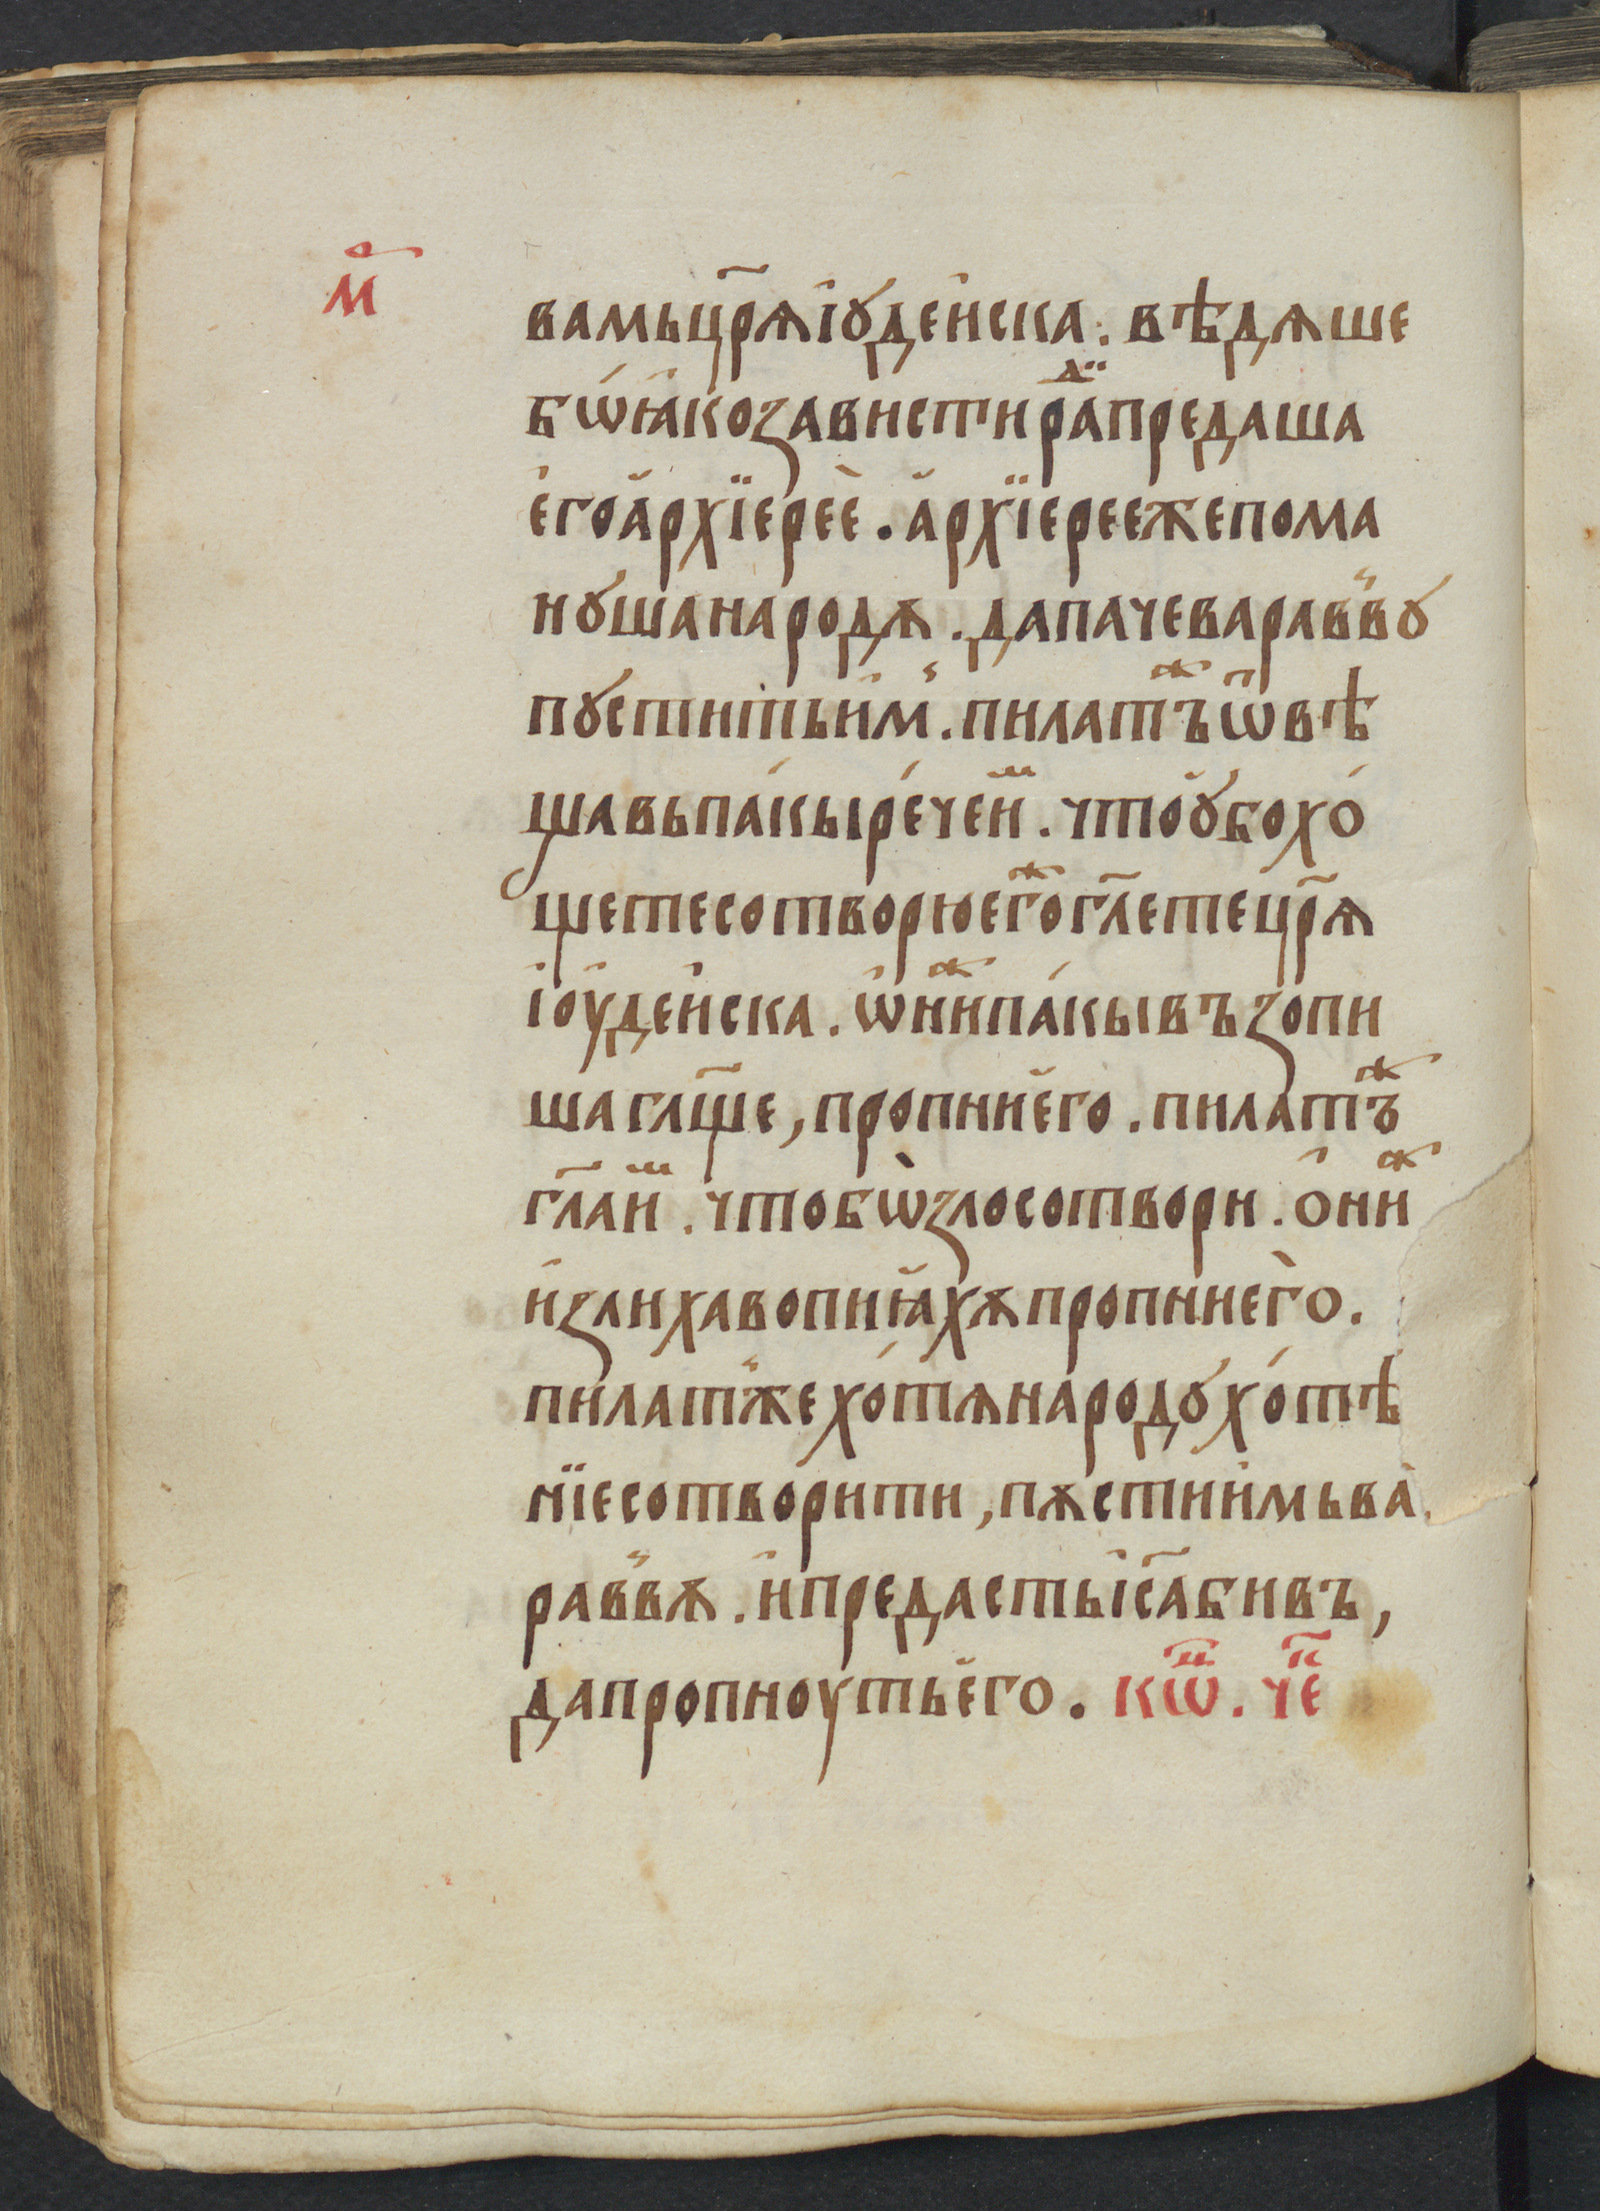 м҃
вамьцр҃ѧіꙋде́иска. вѣдѧше
бѡ꙼ꙗ҆козавистира́дїпредаша
є҆гоа҆рхїєре́є. а҆рхїєреєжепома
нꙋшанародѧ. дапачеварав꙽вꙋ
пꙋститьи҆м꙽. пилатжеъѿвѣ
щавьпа́кыре́чеи҆м. что꙼ꙋбохо́
щетесотворюєго́жегл҃етецр҃ѧ
і҆оуде́иска. ѡ҆ни́жепа́кывъзопи
шагл҃ще, пропниє҆го. пилатжеъ
гл҃аи҆м. чтобѡ̀злосотвори. о҆ни́же
и҆злихавопиꙗ҆хѫпропниєго̀.
пилат꙽жехо́тѧнародꙋхо́тѣ
нїєсотвори́ти, пѫстиимьва̀
рав꙽вѫ. и҆предастьіс҃абивъ,
дапропноутьє҆го. кѿ. чеⷦ